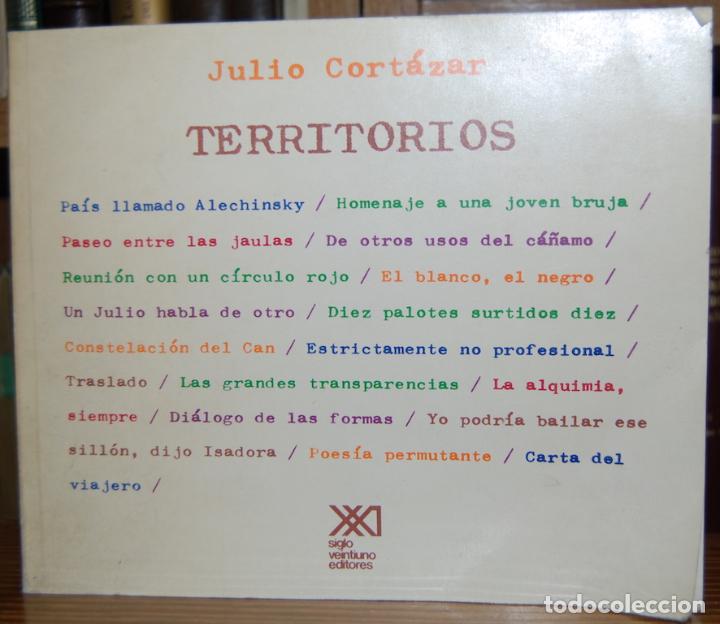 Julio Cortázar
TERRITORIOS
País llamado Alechinsky / Homenaje a una joven bruja /
Paseo entre las jaulas / De otros usos del cáñamo /
Reunión con un círculo rojo / El blanco, el negro /
Un Julio habla de otro / Diez palotes surtidos diez /
Constelación del Can / Estrictamente no profesional /
Traslado / Las grandes transparencias / La alquimia,
siempre / Diálogo de las formas / Yo podría bailar ese
sillón, dijo Isadora / Poesía permutante / Carta del
viajero /
XXI
siglo
veintiuno
editores
todocoleccion